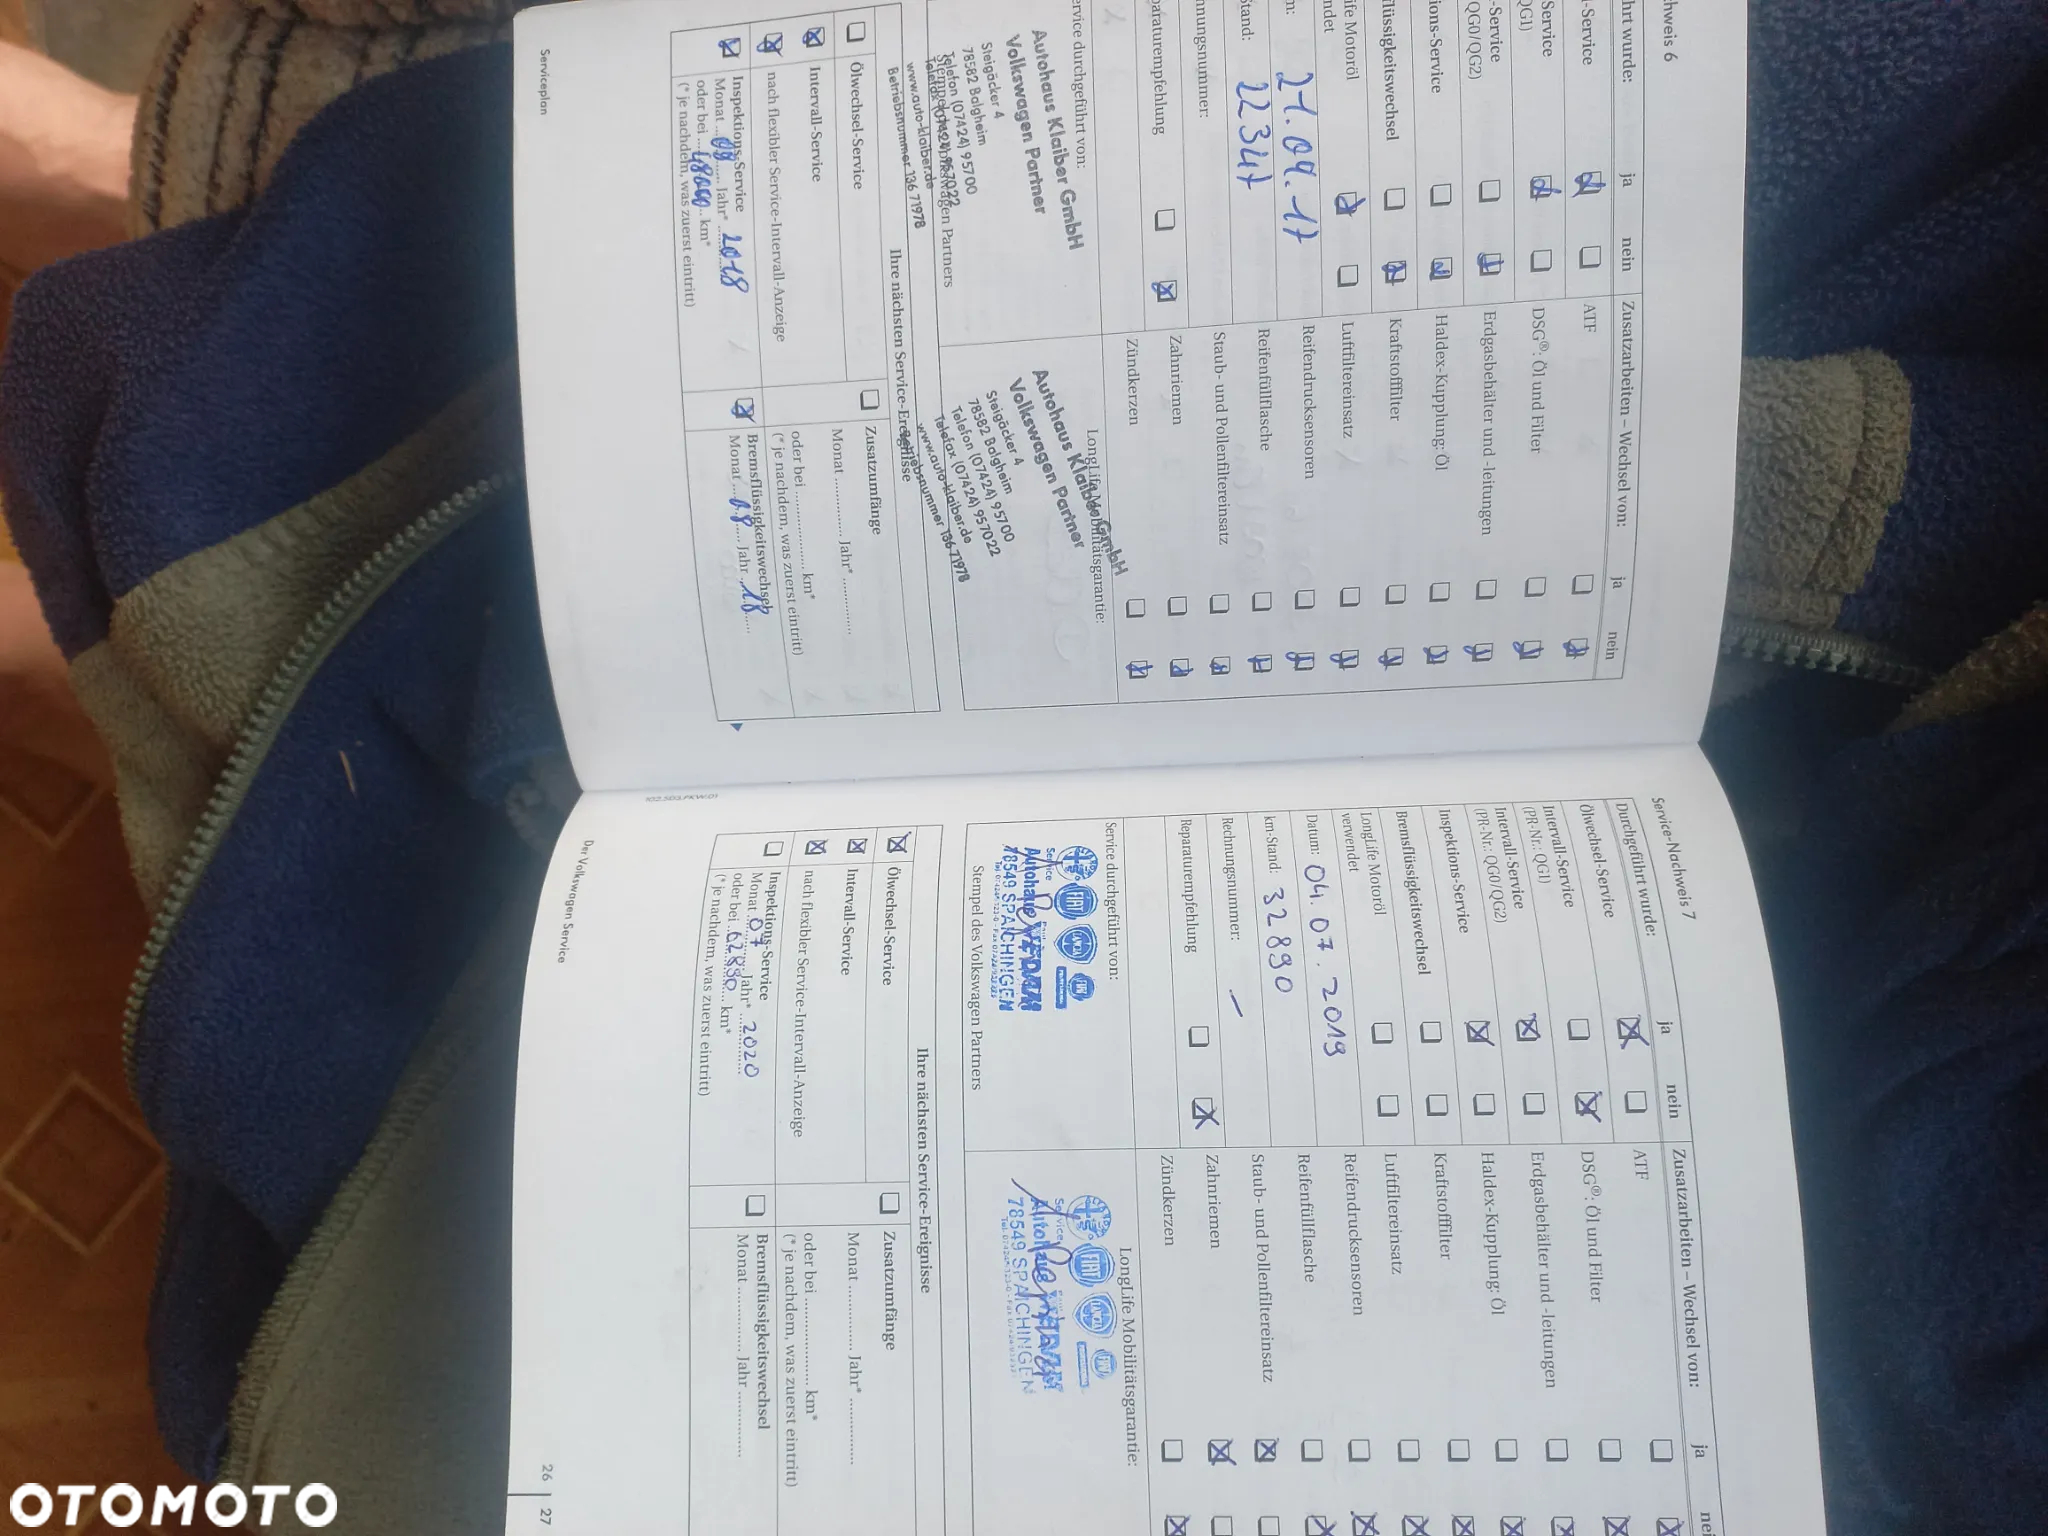 chweis 6
hrt wurde:
ja
nein
l-Service
Service
QG1)
-Service
QG0/QG2)
ions-Service
flüssigkeitswechsel
ife Motoröl
ndet
m:
21.09.17
tand:
22347
nnungsnummer:
paraturempfehlung
ervice durchgeführt von:
Autohaus Klaiber GmbH
Volkswagen Partner
Steigäcker 4
78582 Balgheim
Telefon (07424) 95700
Telefax (07424) 957022
www.auto-klaiber.de
Betriebsnummer 136 71978
Zusatzarbeiten – Wechsel von:
ja
nein
ATF
DSG®: Öl und Filter
Erdgasbehälter und -leitungen
Haldex-Kupplung: Öl
Kraftstofffilter
Luftfiltereinsatz
Reifendrucksensoren
Reifenfüllflasche
Staub- und Pollenfiltereinsatz
Zahnriemen
Zündkerzen
LongLife Mobilitätsgarantie:
Autohaus Klaiber GmbH
Volkswagen Partner
Steigäcker 4
78582 Balgheim
Telefon (07424) 95700
Telefax (07424) 957022
www.auto-klaiber.de
Betriebsnummer 136 71978
Ihre nächsten Service-Ereignisse
Ölwechsel-Service
Intervall-Service
nach flexibler Service-Intervall-Anzeige
Inspektions-Service
Monat 09 Jahr* 2018
oder bei 48000 km*
(* je nachdem, was zuerst eintritt)
Zusatzumfänge
Monat ............ Jahr* ............
oder bei ............ km*
(* je nachdem, was zuerst eintritt)
Bremsflüssigkeitswechsel
Monat Jahr 18
Serviceplan
Service-Nachweis 7
Durchgeführt wurde:
ja
nein
Ölwechsel-Service
Intervall-Service
(PR-Nr.: QG1)
Intervall-Service
(PR-Nr.: QG0/QG2)
Inspektions-Service
Bremsflüssigkeitswechsel
LongLife Motoröl
verwendet
Datum: 04.07.2019
km-Stand: 32890
Rechnungsnummer: –
Reparaturempfehlung
Service durchgeführt von:
Service
FIAT
LANCIA
Autohaus
78549 SPAICHINGEN
Stempel des Volkswagen Partners
Zusatzarbeiten – Wechsel von:
ja
nei
ATF
DSG®: Öl und Filter
Erdgasbehälter und -leitungen
Haldex-Kupplung: Öl
Kraftstofffilter
Luftfiltereinsatz
Reifendrucksensoren
Reifenfüllflasche
Staub- und Pollenfiltereinsatz
Zahnriemen
Zündkerzen
LongLife Mobilitätsgarantie:
Service
FIAT
LANCIA
Autohaus
78549 SPAICHINGEN
Ihre nächsten Service-Ereignisse
Ölwechsel-Service
Intervall-Service
nach flexibler Service-Intervall-Anzeige
Inspektions-Service
Monat 07 Jahr* 2020
oder bei 62890 km*
(* je nachdem, was zuerst eintritt)
Zusatzumfänge
Monat ............ Jahr* ............
oder bei ............ km*
(* je nachdem, was zuerst eintritt)
Bremsflüssigkeitswechsel
Monat ............ Jahr ............
Der Volkswagen Service
26 | 27
OTOMOTO